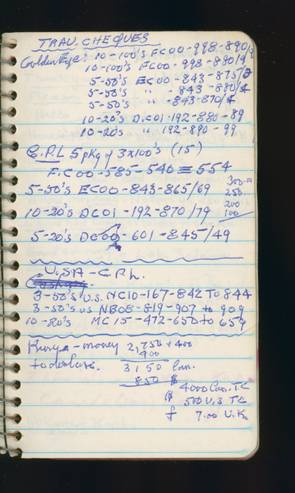 TRAV. CHEQUES
10-100's FC00-998-890/
10-100's FC00-998-890/9
5-50's EC00-843-875/
5-50's " -843-890/4
5-50's " -843-870/4
10-20's DC01-192-880-89
10-20's " 192-890-99
C.P.L 5 pkg of 3x100's (15)
FC00-585-540 = 554
5-50's EC00-843-865/69
10-20's DC01-192-870/79
300
250
200
100
5-20's DC00-601-845/49
U.S.A - C.P.L.
3-50's U.S. NC10-167-842 To 844
3-50's US NB08-819-907 to 909
10-20's MC15-472-650 to 659
Kenya-money 2,750 + 400
400
to declare. 3150 Can.
850 $
4000 Can. TC
$ 500 U.S TC
£ 700 U.K